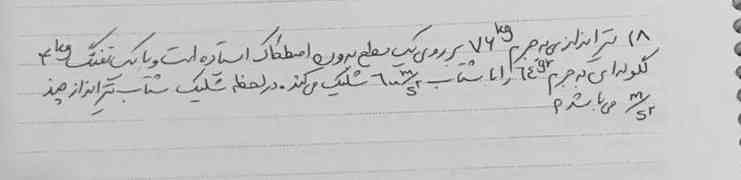 ۱۸ تیراندازی به جرم ۷۶ kg بر روی یک سطح بدون اصطکاک ایستاده است و با یک تفنگ ۴ kg
گلوله ای به جرم ۶۴ gr را با شتاب m/s² شلیک می کند. در لحظه شلیک شتاب تیرانداز چند
m/s² می باشد؟